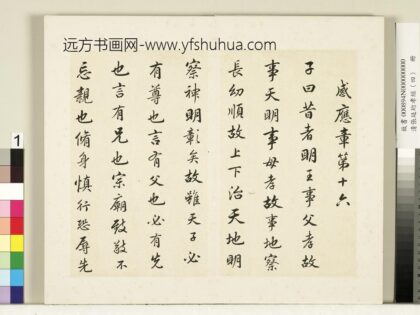 远方书画网-www.yfshuhua.com
感應章第十六
子曰昔者明王事父孝故
事天明事母孝故事地察
長幼順故上下治天地明
察神明彰矣故雖天子必
有尊也言有父也必有先
也言有兄也宗廟致敬不
忘親也脩身慎行恐辱先
1